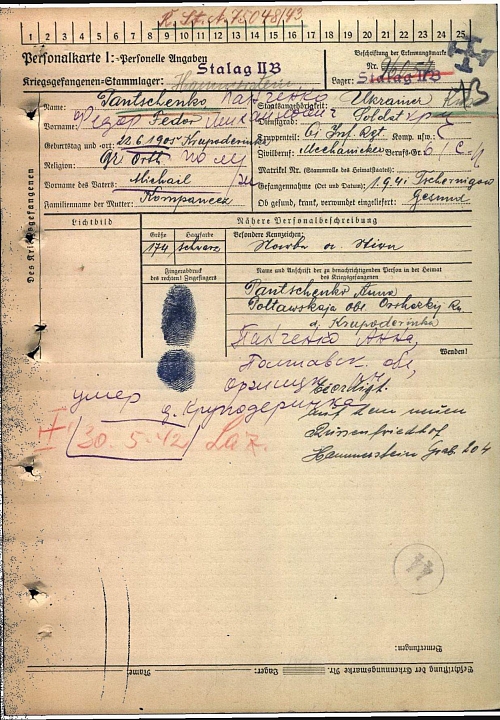 1 2 3 4 5 6 7 8 9 10 11 12 13 14 15 16 17 18 19 20 21 22 23 24 25
Personalkarte I: Personelle Angaben
Beschriftung der Erkennungsmarke
Kriegsgefangenen-Stammlager: Stalag II B
Nr.
Lager: Stalag IIB
Des Kriegsgefangenen
Name: Pantschenko Панченко
Staatsangehörigkeit: Ukrainer
Vorname: Fedor Федор
Dienstgrad: Soldat
Geburtstag und -ort: 22.6.1905 Krupoderinka
Truppenteil: 61 Inf. Rgt. Komp. usw.:
Religion: Gr. Orth.
Zivilberuf: Mechaniker Berufs-Gr.: 6
Matrikel Nr. (Stammrolle des Heimatstaates):
Vorname des Vaters: Michail
Gefangennahme (Ort und Datum): 1.9.41 Tschernigow
Familienname der Mutter: Kompaneez
Ob gesund, krank, verwundet eingeliefert: Gesund
Lichtbild
Nähere Personalbeschreibung
Größe Haarfarbe Besondere Kennzeichen:
174 schwarz Narbe a. Stirn
Fingerabdruck des rechten! Zeigefingers
Name und Anschrift der zu benachrichtigenden Person in der Heimat des Kriegsgefangenen
Pantschenko Anna
Poltawskaja Obl. Orshezkij Rn.
d. Krupoderinka
Панченко Анна,
Wenden!
Полтавск. обл,
умер
д. Круподеринка
Beerdigt
30.5.42 Laz.
auf dem neuen
Russenfriedhof
Hammerstein Grab 204
44
Bemerkungen:
Beschriftung der Erkennungsmarke Nr. Lager: Name: